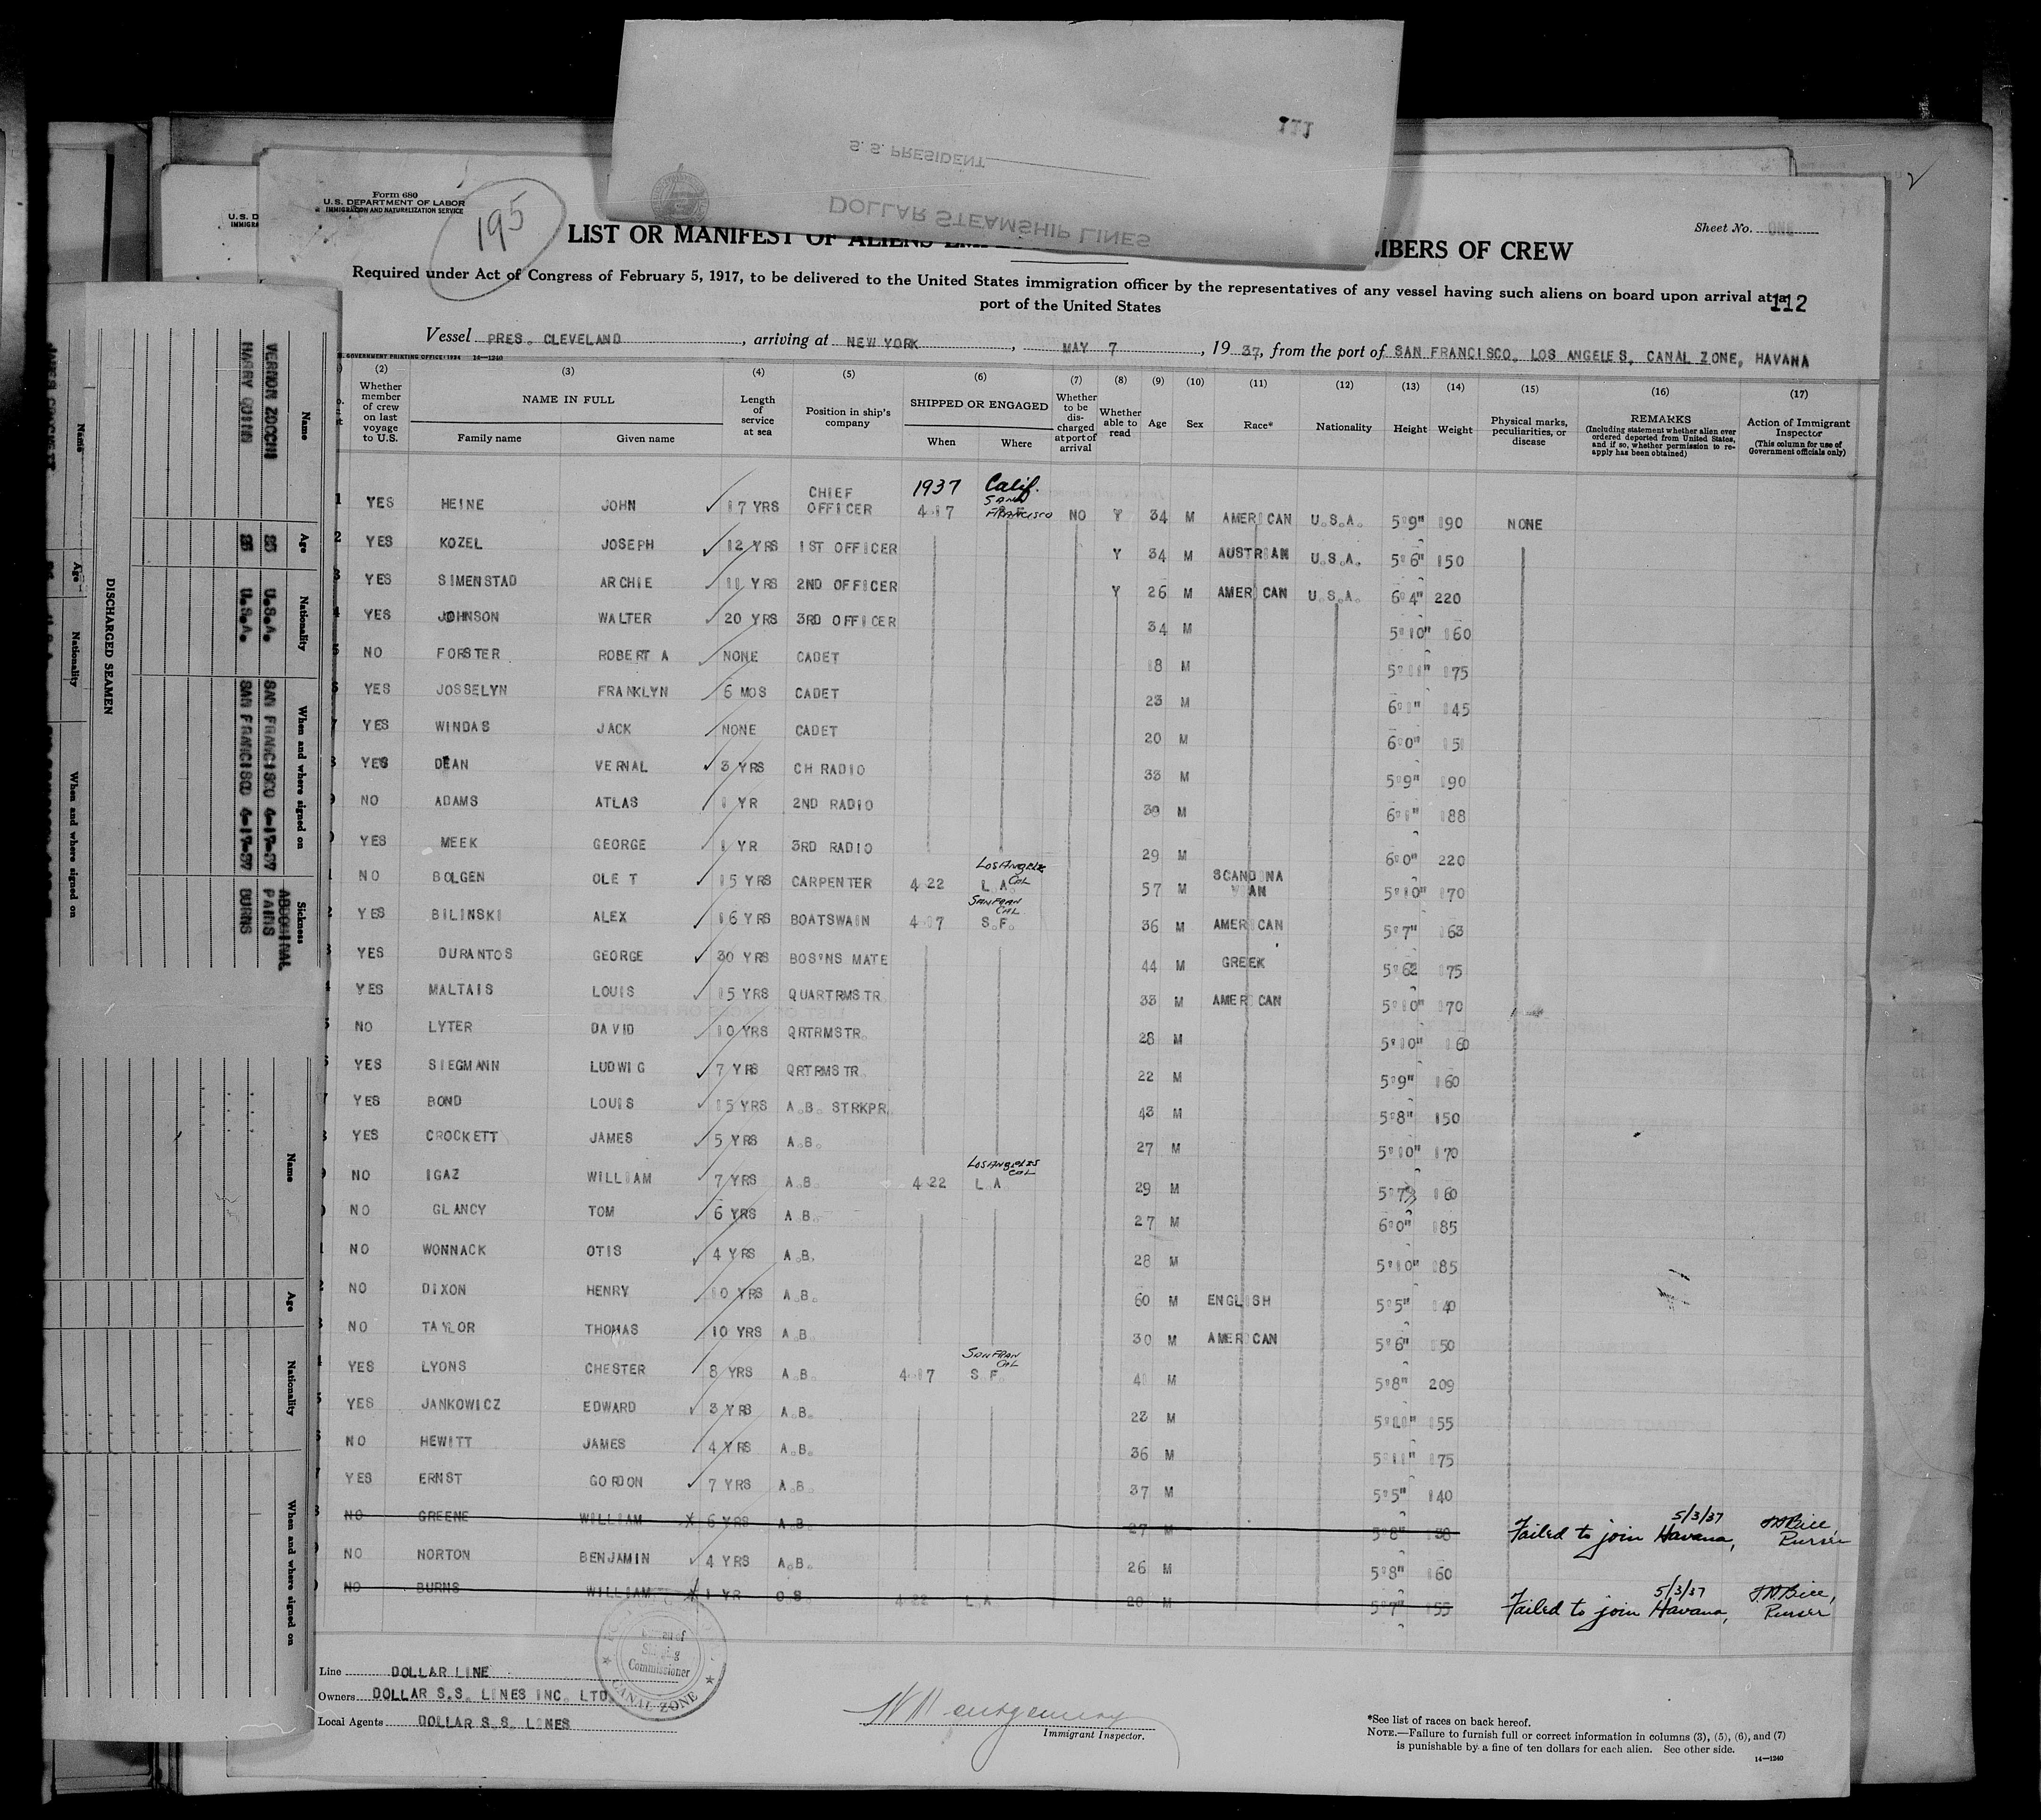 111
S. S. PRESIDENT
DOLLAR STEAMSHIP LINES
Form 680
U.S. DEPARTMENT OF LABOR
IMMIGRATION AND NATURALIZATION SERVICE
195
Sheet No. ONE
LIST OR MANIFEST OF ALIENS MBERS OF CREW
Required under Act of Congress of February 5, 1917, to be delivered to the United States immigration officer by the representatives of any vessel having such aliens on board upon arrival at a
port of the United States
112
Vessel PRES. CLEVELAND, arriving at NEW YORK, MAY 7, 1937, from the port of SAN FRANCISCO, LOS ANGELES, CANAL ZONE, HAVANA
GOVERNMENT PRINTING OFFICE: 1934 14—1240
(2) (3) (4) (5) (6) (7) (8) (9) (10) (11) (12) (13) (14) (15) (16) (17)
Whether member of crew on last voyage to U.S.
NAME IN FULL
Family name Given name
Length of service at sea
Position in ship's company
SHIPPED OR ENGAGED
When Where
Whether to be discharged at port of arrival
Whether able to read
Age Sex Race* Nationality Height Weight
Physical marks, peculiarities, or disease
REMARKS
(Including statement whether alien ever ordered deported from United States, and if so, whether permission to reapply has been obtained)
Action of Immigrant Inspector
(This column for use of Government officials only)
1937 Calif.
1 YES HEINE JOHN 17 YRS CHIEF OFFICER 4 17 SAN FRANCISCO NO Y 34 M AMERICAN U.S.A. 5'9" 190 NONE
2 YES KOZEL JOSEPH 12 YRS 1ST OFFICER Y 34 M AUSTRIAN U.S.A. 5'6" 150
3 YES SIMENSTAD ARCHIE 11 YRS 2ND OFFICER Y 26 M AMERICAN U.S.A. 6'4" 220
4 YES JOHNSON WALTER 20 YRS 3RD OFFICER 34 M 5'10" 160
5 NO FORSTER ROBERT A NONE CADET 18 M 5'11" 175
6 YES JOSSELYN FRANKLYN 6 MOS CADET 23 M 6'1" 145
7 YES WINDAS JACK NONE CADET 20 M 6'0" 151
8 YES DEAN VERNAL 3 YRS CH RADIO 33 M 5'9" 190
9 NO ADAMS ATLAS 1 YR 2ND RADIO 39 M 6'1" 188
0 YES MEEK GEORGE 1 YR 3RD RADIO 29 M 6'0" 220
1 NO BOLGEN OLE T 15 YRS CARPENTER 4 22 LOS ANGELE CAL L.A. 57 M SCANDINAVIAN 5'10" 170
2 YES BILINSKI ALEX 16 YRS BOATSWAIN 4 17 SAN FRAN CAL S.F. 36 M AMERICAN 5'7" 163
3 YES DURANTOS GEORGE 30 YRS BOS'NS MATE 44 M GREEK 5'6 175
4 YES MALTAIS LOUIS 15 YRS QUARTRMSTR 33 M AMERICAN 5'10" 170
5 NO LYTER DAVID 10 YRS QRTRMSTR. 28 M 5'10" 160
6 YES SIEGMANN LUDWIG 7 YRS QRTRMSTR. 22 M 5'9" 160
7 YES BOND LOUIS 15 YRS A.B. STRKPR. 43 M 5'8" 150
8 YES CROCKETT JAMES 5 YRS A.B. 27 M 5'10" 170
9 NO IGAZ WILLIAM 7 YRS A.B. 4 22 LOS ANGELES CAL L.A. 29 M 5'7 160
0 NO GLANCY TOM 6 YRS A.B. 27 M 6'0" 185
1 NO WONNACK OTIS 4 YRS A.B. 28 M 5'10" 185
2 NO DIXON HENRY 10 YRS A.B. 60 M ENGLISH 5'5" 140
3 NO TAYLOR THOMAS 10 YRS A.B. 30 M AMERICAN 5'6" 150
4 YES LYONS CHESTER 8 YRS A.B. 4 17 SAN FRAN CAL S.F. 41 M 5'8" 209
5 YES JANKOWICZ EDWARD 3 YRS A.B. 23 M 5'10" 155
6 NO HEWITT JAMES 4 YRS A.B. 36 M 5'11" 175
7 YES ERNST GORDON 7 YRS A.B. 37 M 5'5" 140
8 NO GREENE WILLIAM X 6 YRS A.B. 27 M 5'8" 138 Failed to join Havana, 5/3/37 Purser
9 NO NORTON BENJAMIN 4 YRS A.B. 26 M 5'8" 160
0 NO BURNS WILLIAM X 1 YR O.S. 4 22 L.A. 28 M 5'7" 155 Failed to join Havana, 5/3/37 Purser
Line DOLLAR LINE
Owners DOLLAR S.S. LINES INC. LTD.
Local Agents DOLLAR S.S. LINES
Shipping
Commissioner
CANAL ZONE
Immigrant Inspector.
*See list of races on back hereof.
NOTE.—Failure to furnish full or correct information in columns (3), (5), (6), and (7)
is punishable by a fine of ten dollars for each alien. See other side.
14—1240
DISCHARGED SEAMEN
Name Age Nationality When and where signed on Sickness
VERNON ZOCCHI U.S.A. SAN FRANCISCO 4-17-37 ABDOMINAL PAINS
HARRY QUINN U.S.A. SAN FRANCISCO 4-17-37 BURNS
Name Age Nationality When and where signed on
Name Age Nationality When and where signed on